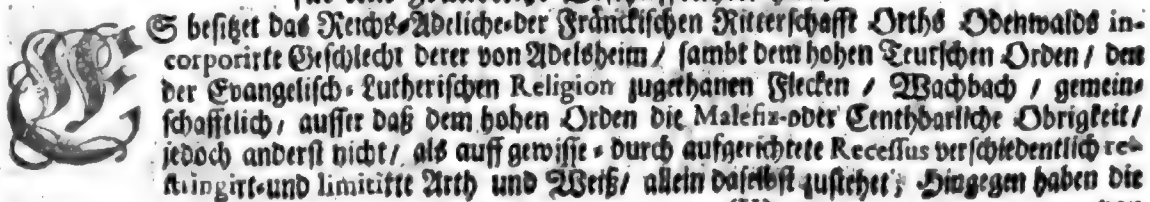 ES besitzet das Reichs-Adeliche-der Fränckischen Ritterschafft Orths Odenwalds in-
corporirte Geschlecht derer von Adelsheim / sambt dem hohen Teutschen Orden / den
der Evangelisch-Lutherischen Religion zugethanen Flecken / Wachbach / gemein-
schafftlich / ausser daß dem hohen Orden die Malefiz-oder Centhbarliche Obrigkeit /
jedoch anderst nicht / als auff gewisse-durch aufgerichtete Recessus verschiedentlich re-
stringirt-und limitirte Arth und Weiß / allein daselbst zustehet; Hingegen haben die